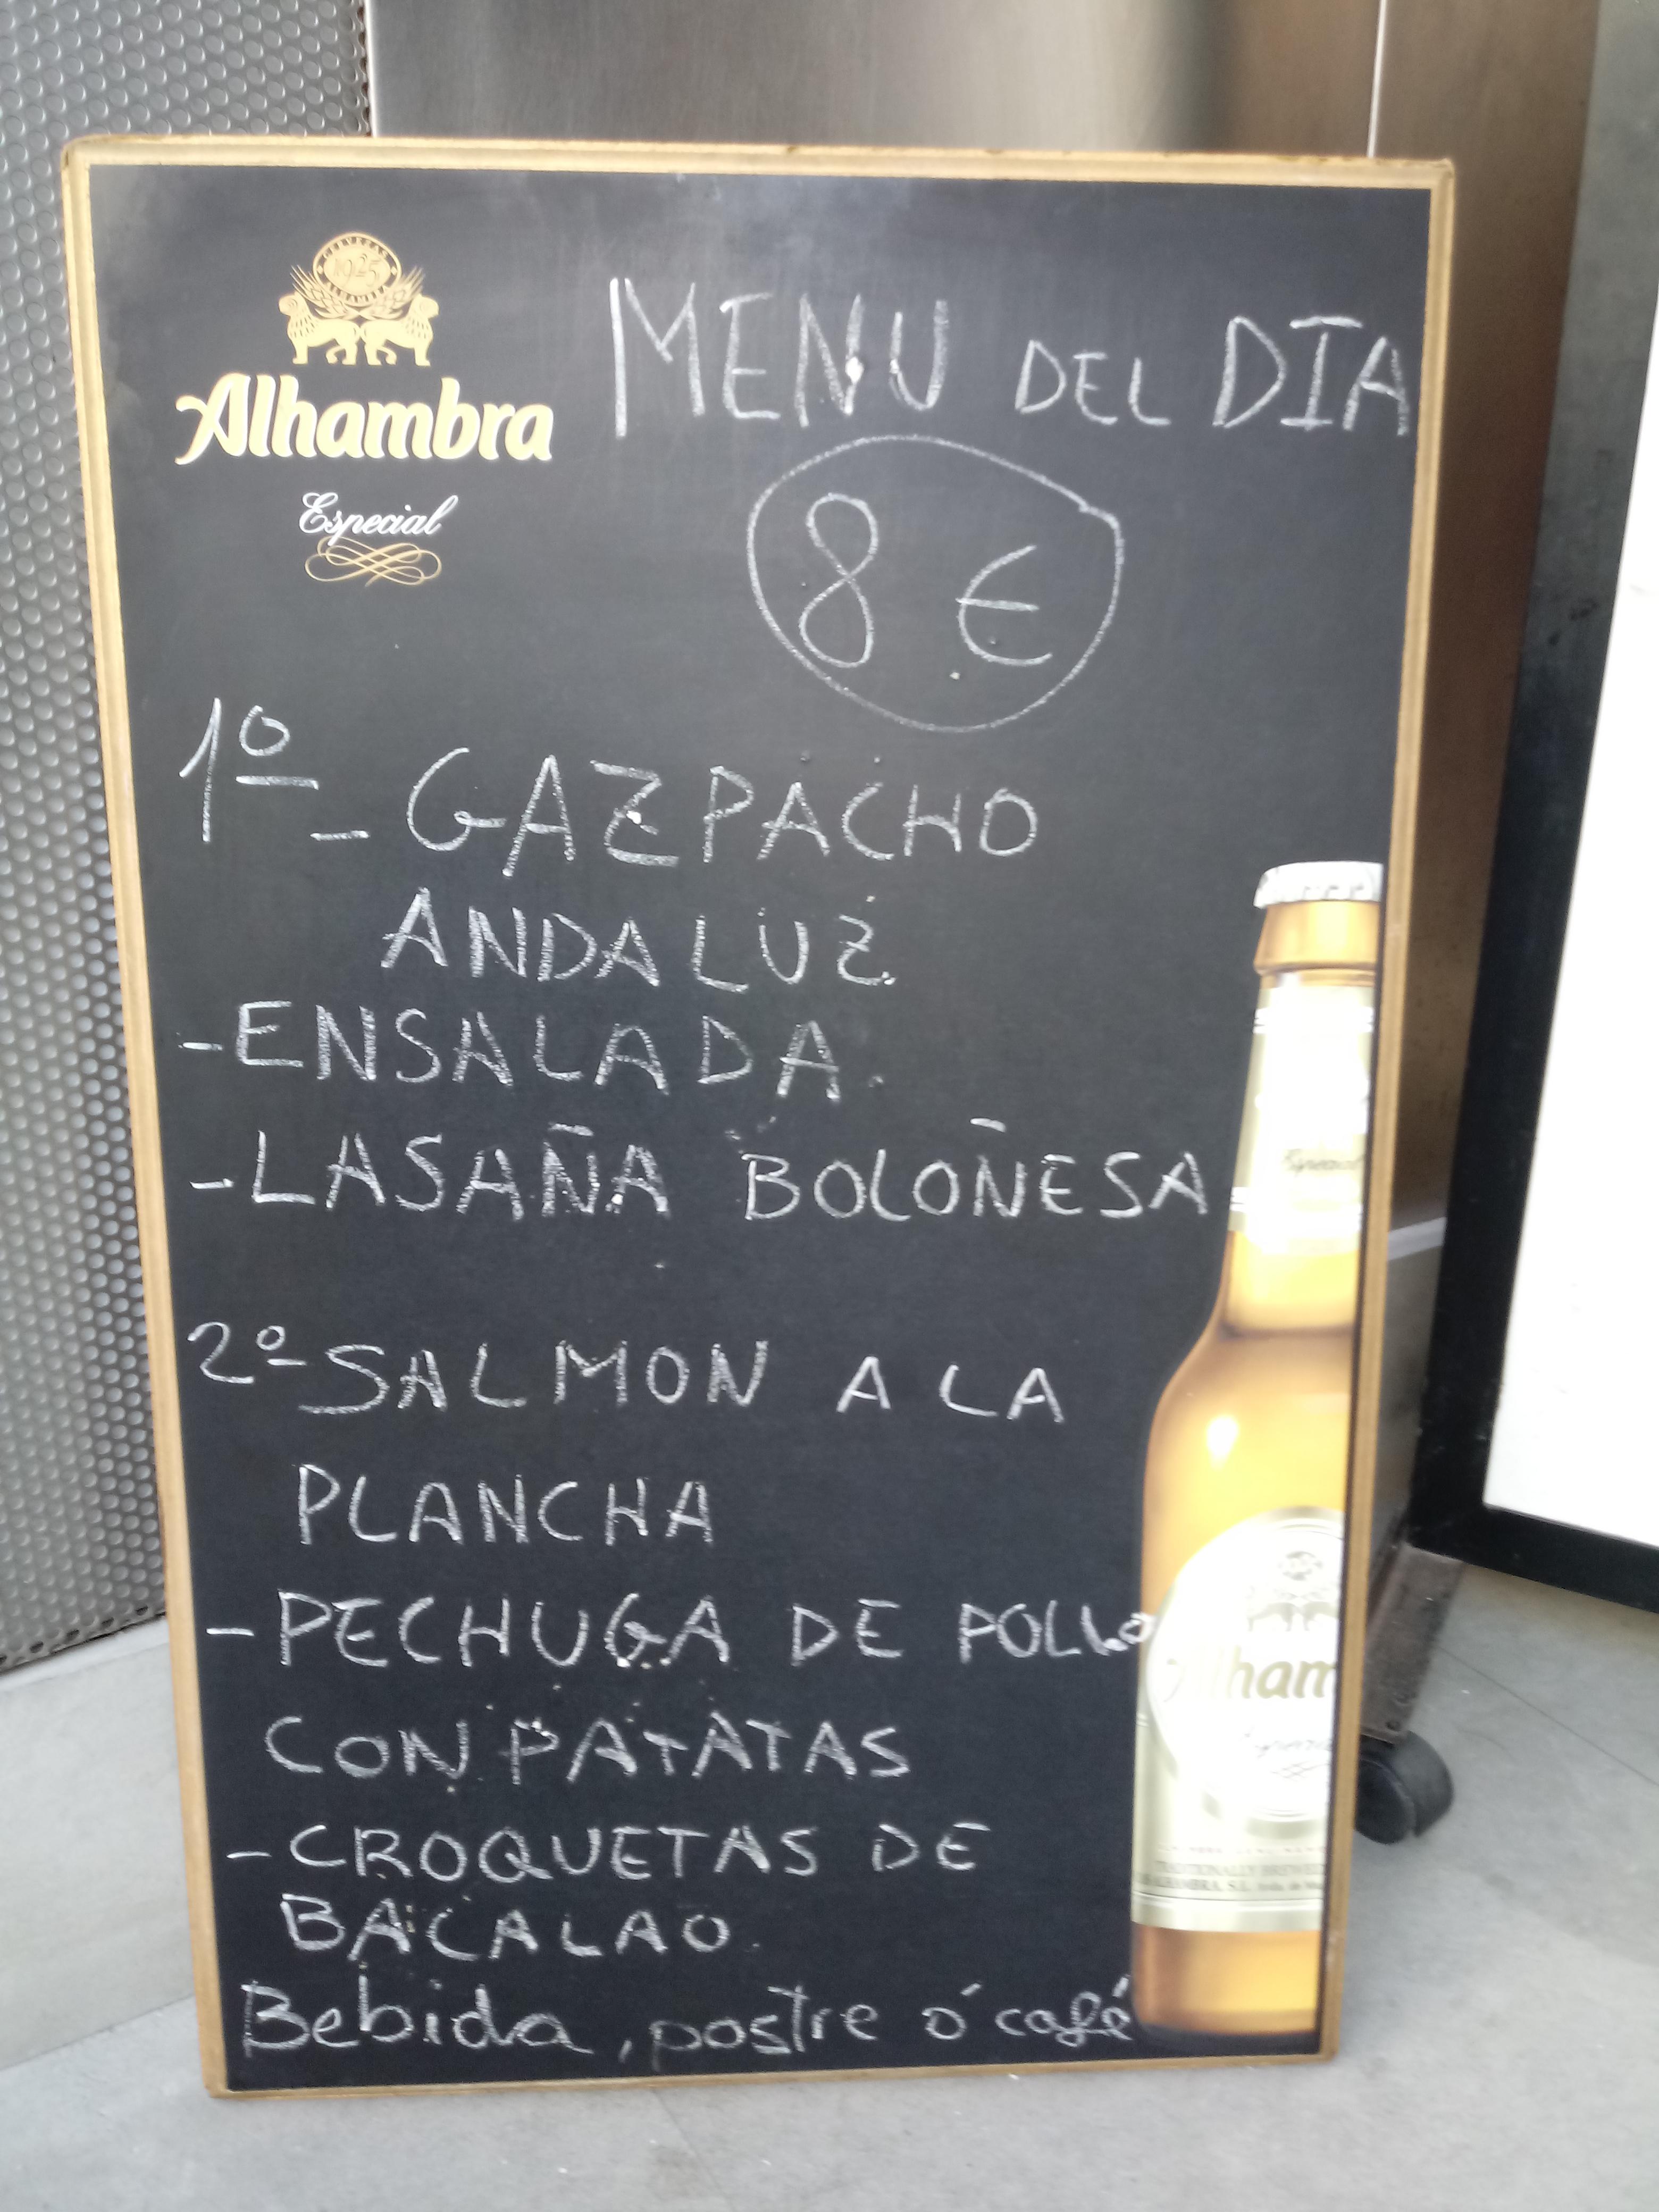 CERVEZAS
1925
ALHAMBRA
Alhambra
Especial
MENU DEL DIA
8 €
1º - GAZPACHO
ANDALUZ
- ENSALADA.
- LASAÑA BOLOÑESA
2º SALMON A LA
PLANCHA
- PECHUGA DE POLLO
CON PATATAS
- CROQUETAS DE
BACALAO.
Bebida, postre ó café
Especial
Alham
Especial
TRADITIONALLY BREWED
ALHAMBRA, S.L.